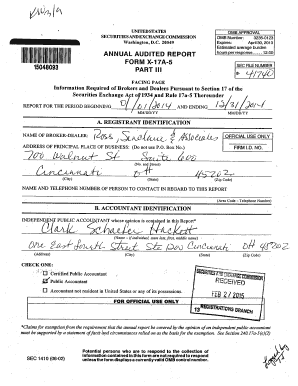 UNITED STATES
SECURITIES AND EXCHANGE COMMISSION
Washington, D.C. 20549
ANNUAL AUDITED REPORT
FORM X-17A-5
PART III
15048093
OMB APPROVAL
OMB Number: 3235-0123
Expires:
Estimated average burden
hours per response
SEC FILE NUMBER
8-41740
FACING PAGE
Information Required of Brokers and Dealers Pursuant to Section 17 of the
Securities Exchange Act of 1934 and Rule 17a-5 Thereunder
REPORT FOR THE PERIOD BEGINNING 01/01/2014 AND ENDING 12/31/2014
MM/DD/YY MM/DD/YY
A. REGISTRANT IDENTIFICATION
NAME OF BROKER-DEALER: Ross, Sinclaire & Associates
OFFICIAL USE ONLY
ADDRESS OF PRINCIPAL PLACE OF BUSINESS: (Do not use P.O. Box No.)
FIRM I.D. NO.
700 Walnut St Suite 600
(No. and Street)
Cincinnati OH 45202
(City) (State) (Zip Code)
NAME AND TELEPHONE NUMBER OF PERSON TO CONTACT IN REGARD TO THIS REPORT
(Area Code - Telephone Number)
B. ACCOUNTANT IDENTIFICATION
INDEPENDENT PUBLIC ACCOUNTANT whose opinion is contained in this Report*
Clark Schaefer Hackett
(Name - if individual, state last, first, middle name)
One East Fourth Street Cincinnati OH 45202
(Address) (City) (State) (Zip Code)
CHECK ONE:
Certified Public Accountant
Public Accountant
Accountant not resident in United States or any of its possessions.
SECURITIES AND EXCHANGE COMMISSION
RECEIVED
FEB 27 2015
REGISTRATIONS BRANCH
FOR OFFICIAL USE ONLY
*Claims for exemption from the requirement that the annual report be covered by the opinion of an independent public accountant
must be supported by a statement of facts and circumstances relied on as the basis for the exemption. See Section 240.17a-5(e)(2)
SEC 1410 (06-02)
Potential persons who are to respond to the collection of
information contained in this form are not required to respond
unless the form displays a currently valid OMB control number.